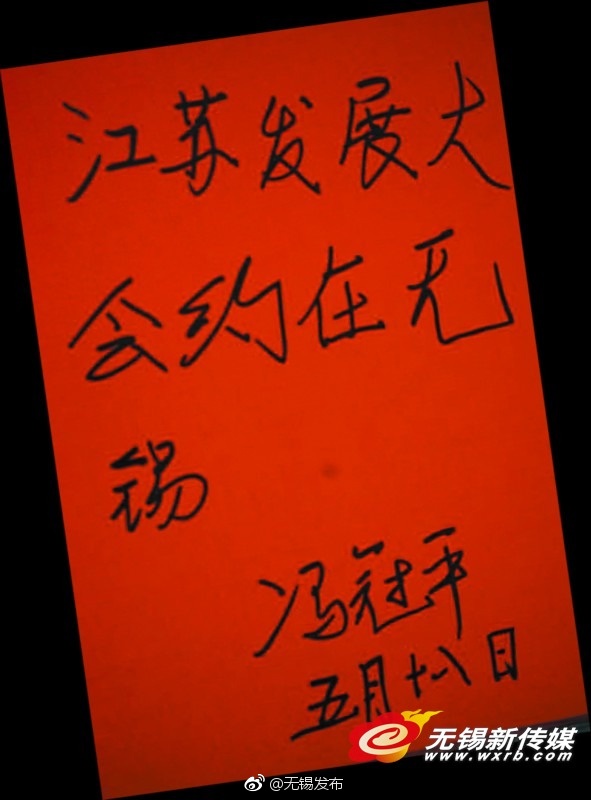 江苏发展大
会约在无
锡
冯冠平
五月十八日
无锡新传媒
www.wxrb.com
@无锡发布